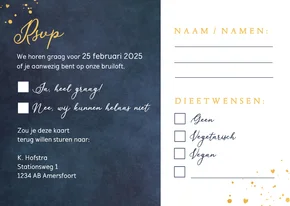 Rsvp
We horen graag voor 25 februari 2025
of je aanwezig bent op onze bruiloft.
Ja, heel graag!
Nee, wij kunnen helaas niet
Zou je deze kaart
terug willen sturen naar:
K. Hofstra
Stationsweg 1
1234 AB Amersfoort
NAAM / NAMEN:
DIEETWENSEN:
Geen
Vegetarisch
Vegan